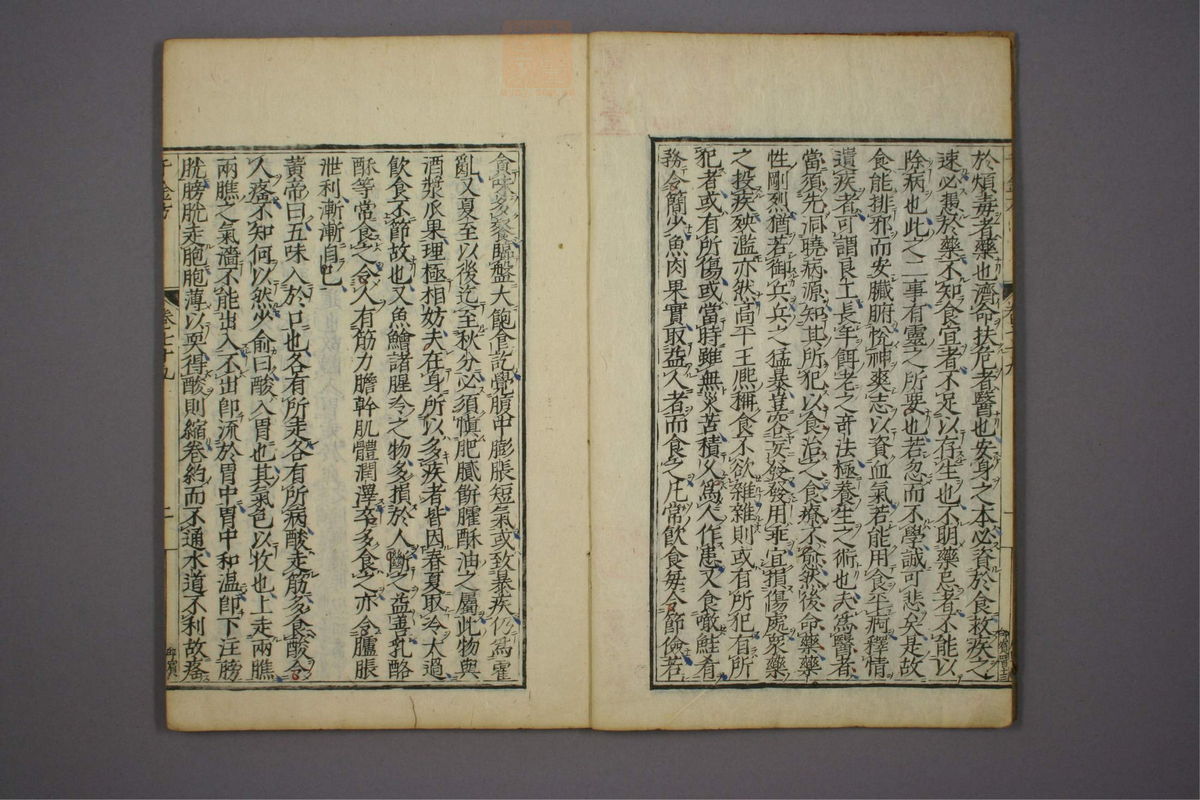 於煩毒者藥也濟命扶危者醫也安身之本必資於食救疾之
速必憑於藥不知食宜者不足以存生也不明藥忌者不能以
除病也此之二事有靈之所要也若忽而不學誠可悲矣是故
食能排邪而安臟腑悅神爽志以資血氣若能用食平痾釋情
遣疾者可謂良工長年餌老之奇法極養生之術也夫為醫者
當須先洞曉病源知其所犯以食治之食療不愈然後命藥藥
性剛烈猶若御兵兵之猛暴豈容妄發發用乖宜損傷處眾藥
之投疾殃濫亦然高平王熈稱食不欲雜雜則或有所犯有所
犯者或有所傷或當時雖無災苦積久為人作患又食噉鮭肴
務令簡少魚肉果實取益人者而食之凡常飲食每令節儉若
貪味多餐臨盤大飽食訖覺腹中膨脹短氣或致暴疾仍為霍
亂又夏至以後迄至秋分必須慎肥膩餅臛酥油之屬此物與
酒漿瓜果理極相妨夫在身所以多疾者皆因春夏取冷太過
飲食不節故也又魚鱠諸腥冷之物多損於人斷之益善乳酪
酥等常食之令人有筋力膽幹肌體潤澤卒多食之亦令臚脹
泄利漸漸自已
黃帝曰五味入於口也各有所走各有所病酸走筋多食酸令
人癃不知何以然少俞曰酸入胃也其氣色以收也上走兩膲
兩膲之氣濇不能出入不出即流於胃中胃中和温即下注膀
胱膀胱走胞胞薄以耎得酸則縮卷約而不通水道不利故癃
千金方
卷七十九
二